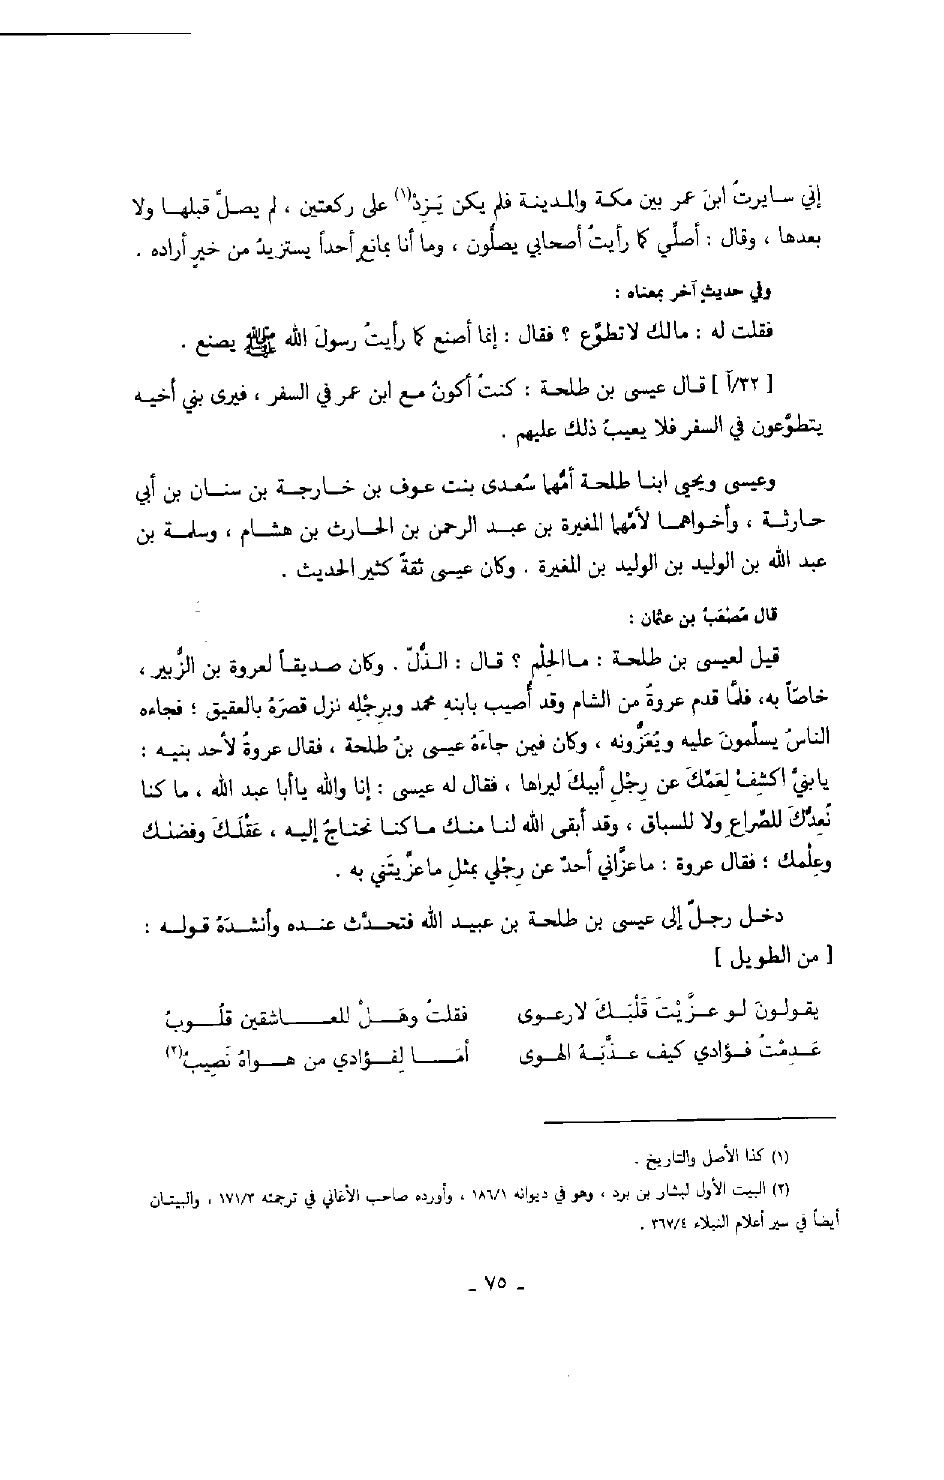 إني سايرتُ ابنَ عمر بين مكة والمدينة فلم يكن يَزِدْ(١) على ركعتين ، لم يصلِّ قبلها ولا
بعدها ، وقال : أصلِّي كما رأيتُ أصحابي يصلُّون ، وما أنا بمانعٍ أحداً يستزيدُ من خيرٍ أراده .
وفي حديثٍ آخر بمعناه :
فقلت له : مالك لا تطوَّع ؟ فقال : إنما أصنع كما رأيتُ رسولَ الله ﷺ يصنع .
[ ٣٢/آ ] قال عيسى بن طلحة : كنتُ أكونُ مع ابن عمر في السفر ، فيرى بني أخيه
يتطوَّعون في السفر فلا يعيبُ ذلك عليهم .
وعيسى ويحيى ابنا طلحة أمُّهما سُعدى بنت عوف بن خارجة بن سنان بن أبي
حارثة ، وأخواهما لأمِّهما المغيرة بن عبد الرحمن بن الحارث بن هشام ، وسلمة بن
عبد الله بن الوليد بن الوليد بن المغيرة . وكان عيسى ثقةً كثير الحديث .
قال مُصْعَبُ بن عثمان :
قيل لعيسى بن طلحة : ما الحِلْم ؟ قال : الذُّلّ . وكان صديقاً لعروة بن الزُّبير ،
خاصّاً به، فلمَّا قدم عروةُ من الشام وقد أُصيب بابنه محمد وبرجْلِه نزل قصرَهُ بالعقيق ؛ فجاءه
الناسُ يسلِّمونَ عليه ويُعَزُّونه ، وكان فيمن جاءَهُ عيسى بنُ طلحة ، فقال عروةُ لأحد بنيه :
يا بنيَّ اكشِفْ لِعَمِّكَ عن رِجْلِ أبيكَ ليراها ، فقال له عيسى : إنا والله يا أبا عبد الله ، ما كنا
نُعِدُّكَ للصِّراعِ ولا للسباق ، وقد أبقى الله لنا منك ما كنا نحتاجُ إليه ، عَقْلَكَ وفضلك
وعِلْمك ؛ فقال عروة : ما عزَّاني أحدٌ عن رِجْلي بمثلِ ما عزَّيتَني به .
دخل رجلٌ إلى عيسى بن طلحة بن عبيد الله فتحدَّث عنده وأنشدَهُ قوله :
[ من الطويل ]
يقولونَ لو عزَّيْتَ قَلْبَكَ لارعوى فقلتُ وهَلْ للعاشقين قلُوبُ
عَدِمْتُ فؤادي كيف عذَّبَهُ الهوى أمَا لِفؤادي من هواهُ نَصِيبُ(٢)
(١) كذا الأصل والتاريخ .
(٢) البيت الأول لبشار بن برد ، وهو في ديوانه ١٨٦/١ ، وأورده صاحب الأغاني في ترجمته ١٧١/٣ ، والبيتان
أيضاً في سير أعلام النبلاء ٣٦٧/٤ .
- ٧٥ -